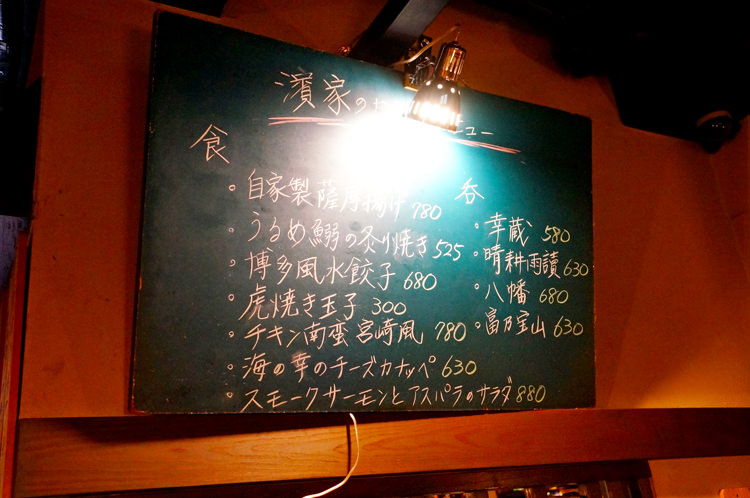 濱家の
ニュー
食
・自家製薩摩揚げ 780
・うるめ鰯の炙り焼き 525
・博多風水餃子 680
・虎焼き玉子 300
・チキン南蛮宮崎風 780
・海の幸のチーズカナッペ 630
・スモークサーモンとアスパラのサラダ 880
呑
・幸蔵 580
・晴耕雨讀 630
・八幡 680
・富乃宝山 630